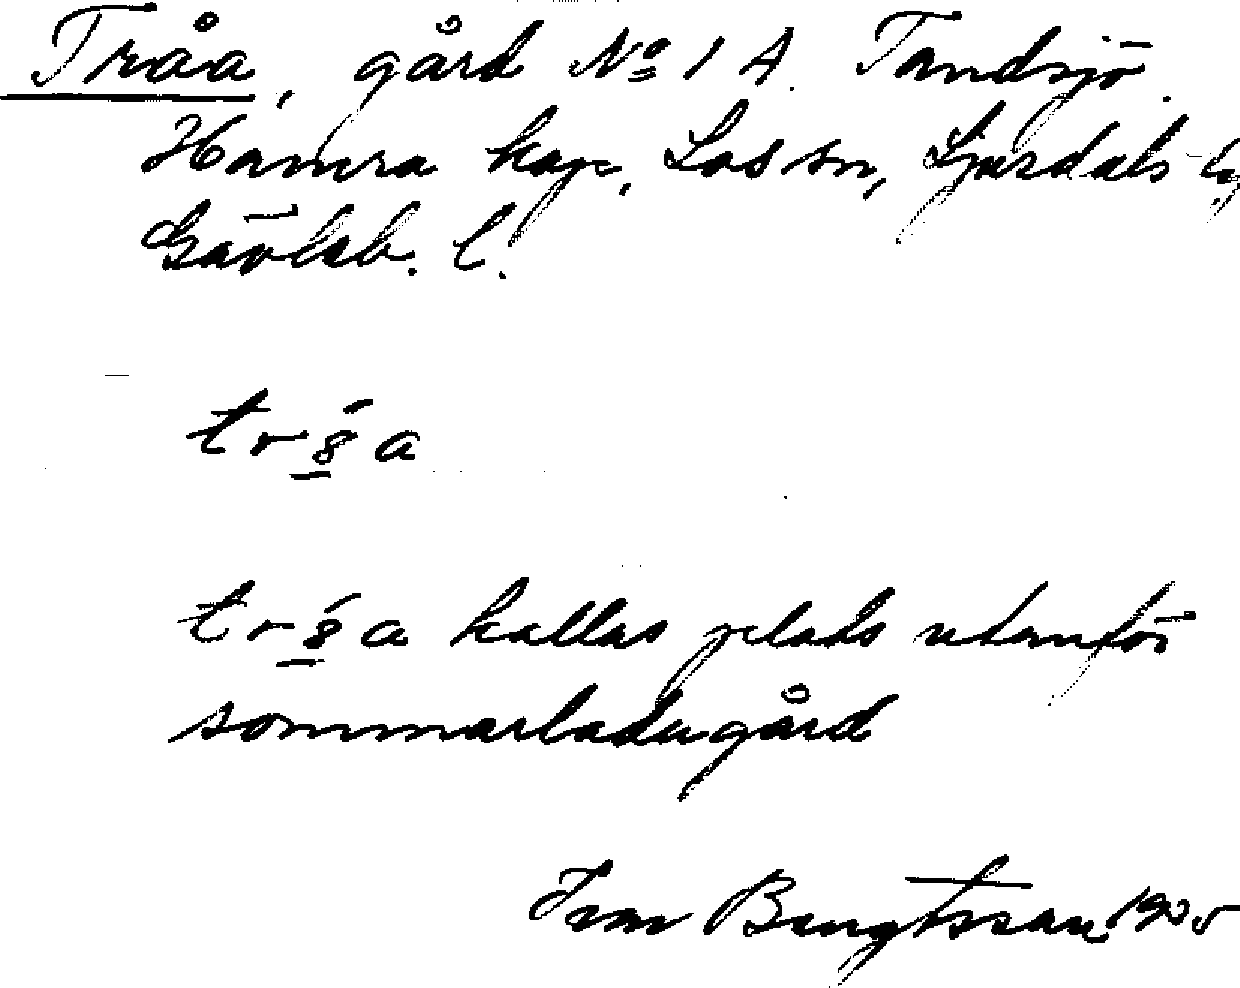 Tråa, gård No 1 A. Tandsjö.
Hamra kap., Los sn, Ljusdals tg,
Gävleb. l.
trša
trša kallas plats utanför
sommarladugård
Ivar Bengtsson 1905